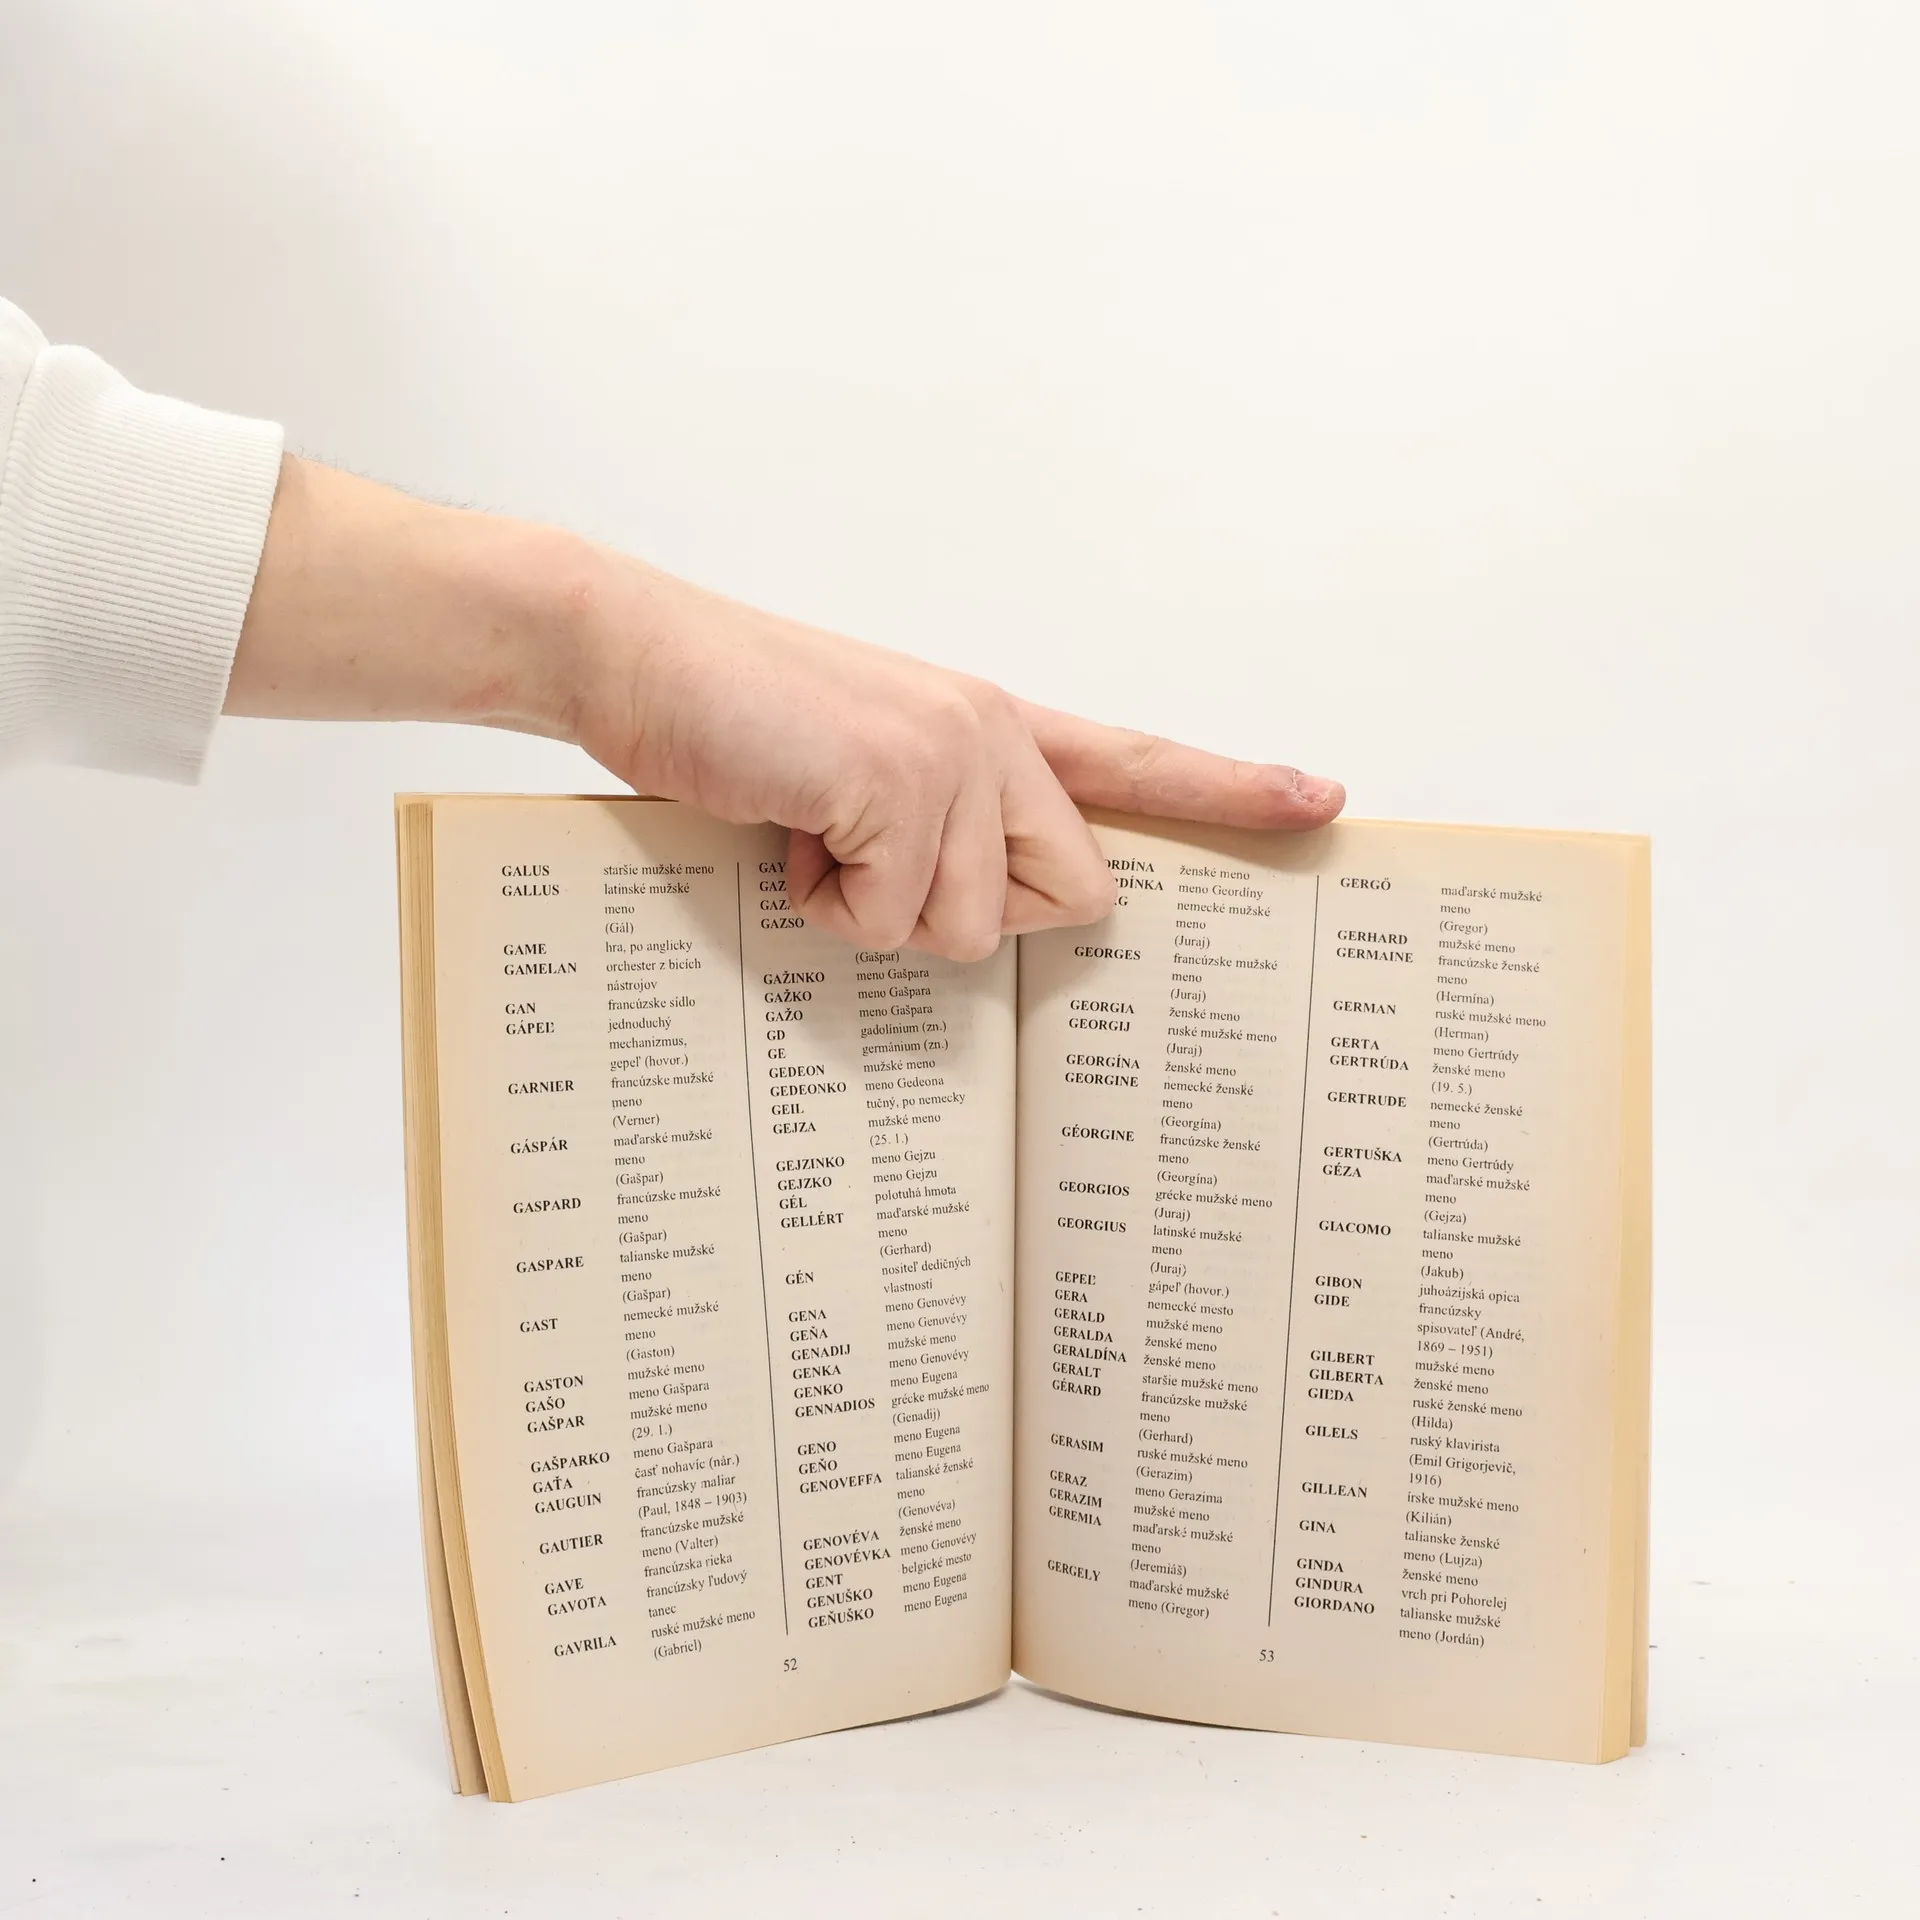 GALUS staršie mužské meno
GALLUS latinské mužské
meno
(Gál)
GAME hra, po anglicky
GAMELAN orchester z bicích
nástrojov
GAN francúzske sídlo
GÁPEĽ jednoduchý
mechanizmus,
gepeľ (hovor.)
GARNIER francúzske mužské
meno
(Verner)
GÁSPÁR maďarské mužské
meno
(Gašpar)
GASPARD francúzske mužské
meno
(Gašpar)
GASPARE talianske mužské
meno
(Gašpar)
GAST nemecké mužské
meno
(Gaston)
GASTON mužské meno
GAŠO meno Gašpara
GAŠPAR mužské meno
(29. 1.)
GAŠPARKO meno Gašpara
GAŤA časť nohavíc (nár.)
GAUGUIN francúzsky maliar
(Paul, 1848 – 1903)
GAUTIER francúzske mužské
meno (Valter)
GAVE francúzska rieka
GAVOTA francúzsky ľudový
tanec
GAVRILA ruské mužské meno
(Gabriel)
GAY
GAZ
GAZ
GAZSO
(Gašpar)
GAŽINKO meno Gašpara
GAŽKO meno Gašpara
GAŽO meno Gašpara
GD gadolínium (zn.)
GE germánium (zn.)
GEDEON mužské meno
GEDEONKO meno Gedeona
GEIL tučný, po nemecky
GEJZA mužské meno
(25. 1.)
GEJZINKO meno Gejzu
GEJZKO meno Gejzu
GÉL polotuhá hmota
GELLÉRT maďarské mužské
meno
(Gerhard)
GÉN nositeľ dedičných
vlastností
GENA meno Genovévy
GEŇA meno Genovévy
GENADIJ mužské meno
GENKA meno Genovévy
GENKO meno Eugena
GENNADIOS grécke mužské meno
(Genadij)
GENO meno Eugena
GEŇO meno Eugena
GENOVEFFA talianske ženské
meno
(Genovéva)
GENOVÉVA ženské meno
GENOVÉVKA meno Genovévy
GENT belgické mesto
GENUŠKO meno Eugena
GEŇUŠKO meno Eugena
52
ORDÍNA ženské meno
DÍNKA meno Geordíny
G nemecké mužské
meno
(Juraj)
GEORGES francúzske mužské
meno
(Juraj)
GEORGIA ženské meno
GEORGIJ ruské mužské meno
(Juraj)
GEORGÍNA ženské meno
GEORGINE nemecké ženské
meno
(Georgína)
GÉORGINE francúzske ženské
meno
(Georgína)
GEORGIOS grécke mužské meno
(Juraj)
GEORGIUS latinské mužské
meno
(Juraj)
GEPEĽ gápeľ (hovor.)
GERA nemecké mesto
GERALD mužské meno
GERALDA ženské meno
GERALDÍNA ženské meno
GERALT staršie mužské meno
GÉRARD francúzske mužské
meno
(Gerhard)
GERASIM ruské mužské meno
(Gerazim)
GERAZ meno Gerazima
GERAZIM mužské meno
GEREMIA maďarské mužské
meno
(Jeremiáš)
GERGELY maďarské mužské
meno (Gregor)
GERGŐ maďarské mužské
meno
(Gregor)
GERHARD mužské meno
GERMAINE francúzske ženské
meno
(Hermína)
GERMAN ruské mužské meno
(Herman)
GERTA meno Gertrúdy
GERTRÚDA ženské meno
(19. 5.)
GERTRUDE nemecké ženské
meno
(Gertrúda)
GERTUŠKA meno Gertrúdy
GÉZA maďarské mužské
meno
(Gejza)
GIACOMO talianske mužské
meno
(Jakub)
GIBON juhoázijská opica
GIDE francúzsky
spisovateľ (André,
1869 – 1951)
GILBERT mužské meno
GILBERTA ženské meno
GIĽDA ruské ženské meno
(Hilda)
GILELS ruský klavirista
(Emil Grigorjevič,
1916)
GILLEAN írske mužské meno
(Kilián)
GINA talianske ženské
meno (Lujza)
GINDA ženské meno
GINDURA vrch pri Pohorelej
GIORDANO talianske mužské
meno (Jordán)
53